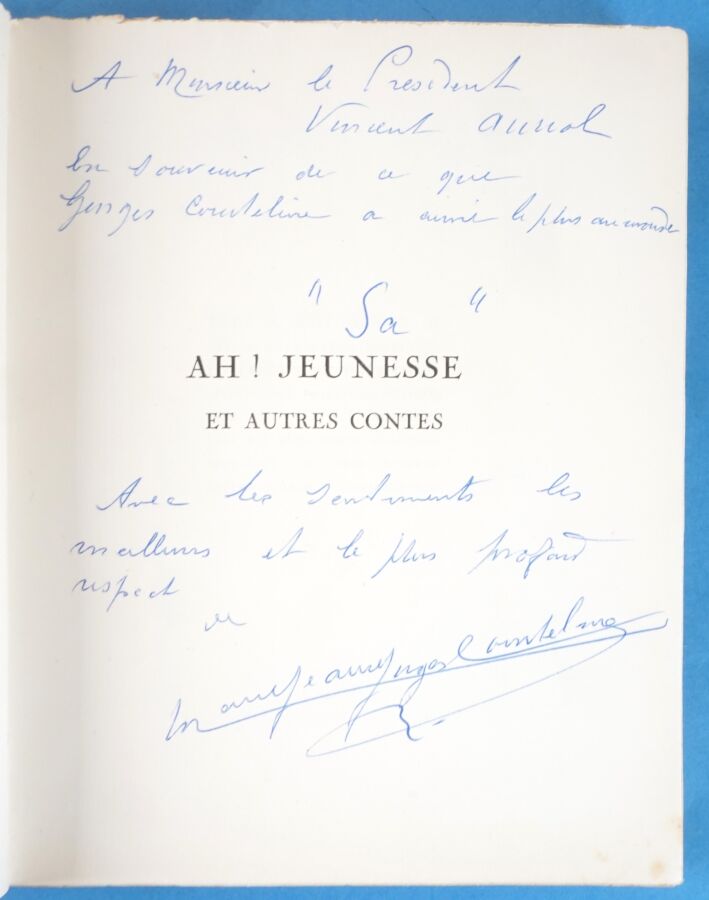 A Monsieur le President
Vincent Auriol
En souvenir de ce que
Georges Courteline a aimé le plus au monde
" Sa "
AH ! JEUNESSE
ET AUTRES CONTES
Avec les sentiments les
meilleurs et le plus profond
respect
de
Georges Courteline